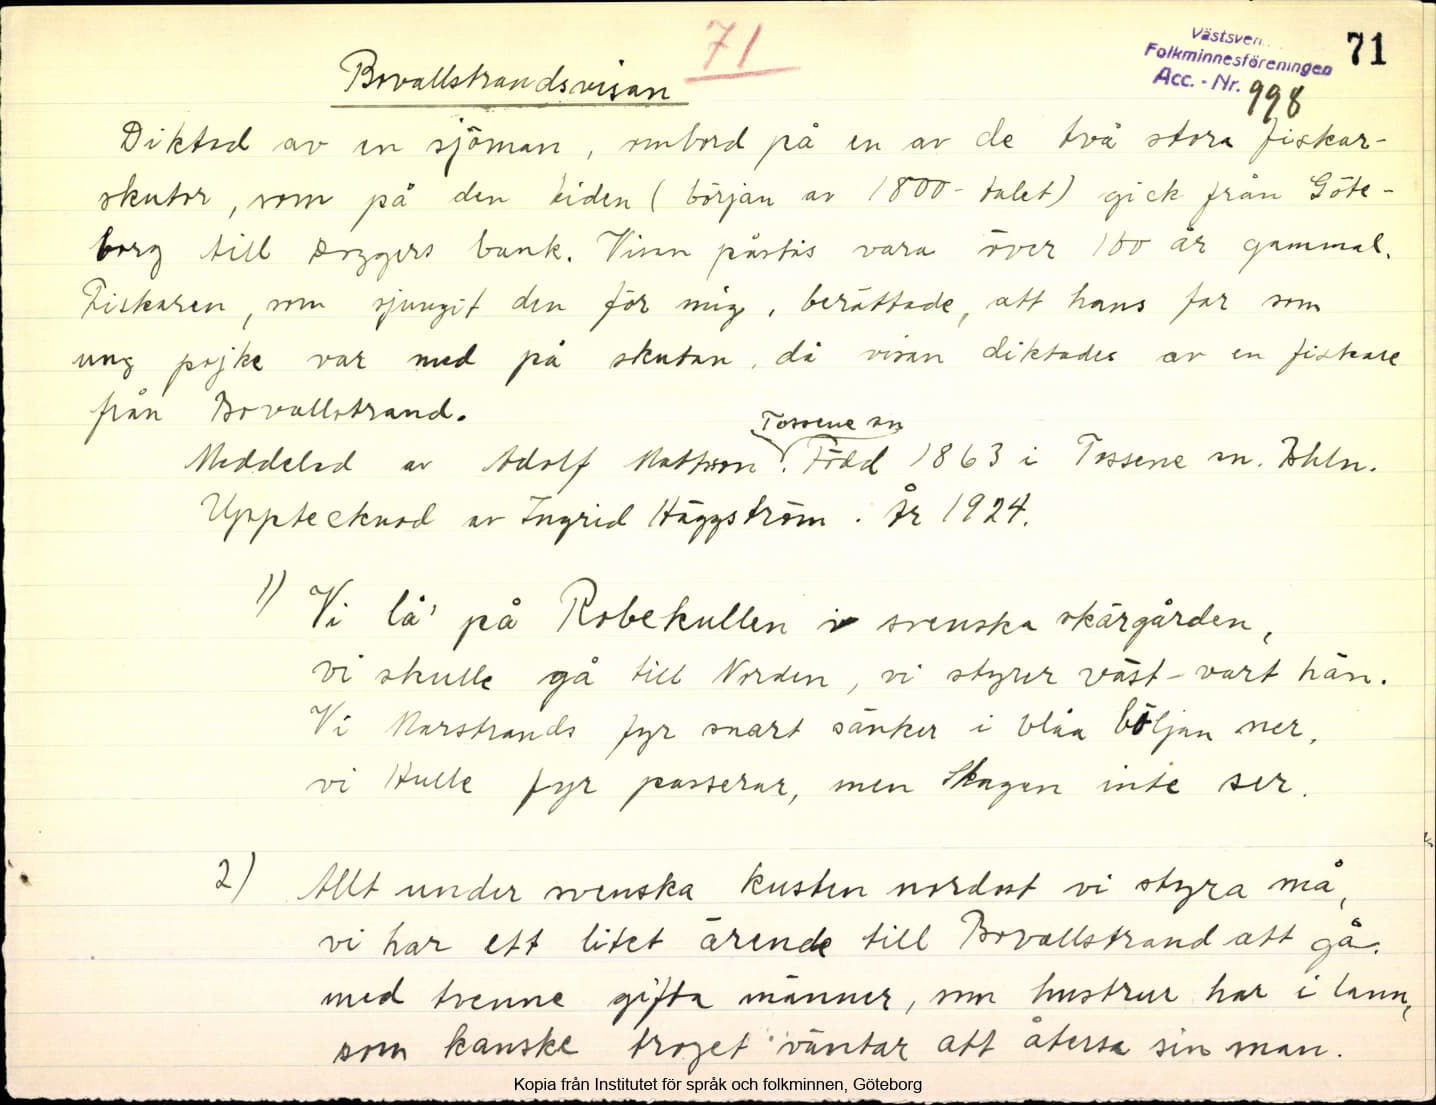 71
Västsven...
Folkminnesföreningen
Acc. - Nr. 998
71
Bovallstrandsvisan
Diktad av en sjöman, ombord på en av de två stora fiskar-
skutor, som på den tiden (början av 1800-talet) gick från Göte-
borg till Doggers bank. Visan påstås vara över 100 år gammal.
Fiskaren, som sjungit den för mig, berättade, att hans far som
ung pojke var med på skutan, då visan diktades av en fiskare
från Bovallstrand.
Meddelad av Adolf Mattsson. Tossene sn Född 1863 i Tossene sn. Bhln.
Upptecknad av Ingrid Häggström. År 1924.
1) Vi lå' på Robekullen i svenska skärgården,
vi skulle gå till Norden, vi styrer väst-vart hän.
Vi Marstrands fyr snart sänker i blåa böljan ner,
vi Hulle fyr passerar, men Skagen inte ser.
2) Allt under svenska kusten nordost vi styra må,
vi har ett litet ärende till Bovallstrand att gå.
med tvenne gifta männer, som hustrur har i lann,
som kanske troget väntar att återse sin man.
Kopia från Institutet för språk och folkminnen, Göteborg